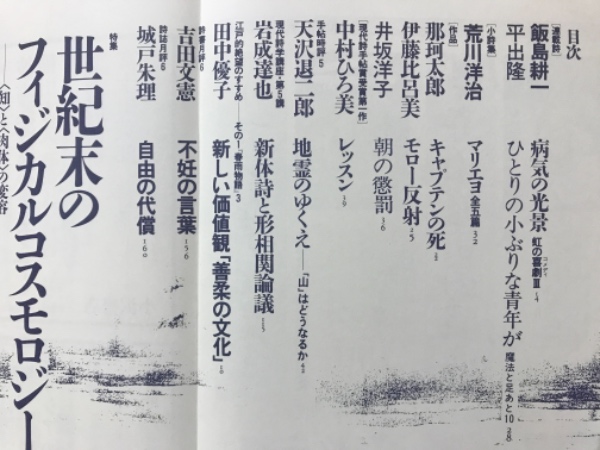 目次
[連載詩]
飯島耕一 病気の光景 虹の喜劇Ⅲ
平出隆 ひとりの小ぶりな青年が 魔法と足あと10 28
[小詩集]
荒川洋治 マリエヨ 全五篇 32
[作品]
那珂太郎 キャプテンの死
伊藤比呂美 モロー反射 25
井坂洋子 朝の懲罰 16
[現代詩手帖賞受賞第一作]
中村ひろ美 レッスン 19
手帖時評5
天沢退二郎 地霊のゆくえ――「山」はどうなるか 42
現代詩学講座・第5講
岩成達也 新体詩と形相関論議
江戸的絶望のすすめ――その一「春雨物語」3
田中優子 新しい価値観「善柔の文化」
詩書月評6
吉田文憲 不妊の言葉 156
詩誌月評6
城戸朱理 自由の代償 160
特集
世紀末の
フィジカルコスモロジー
――〈知〉と〈肉体〉の変容